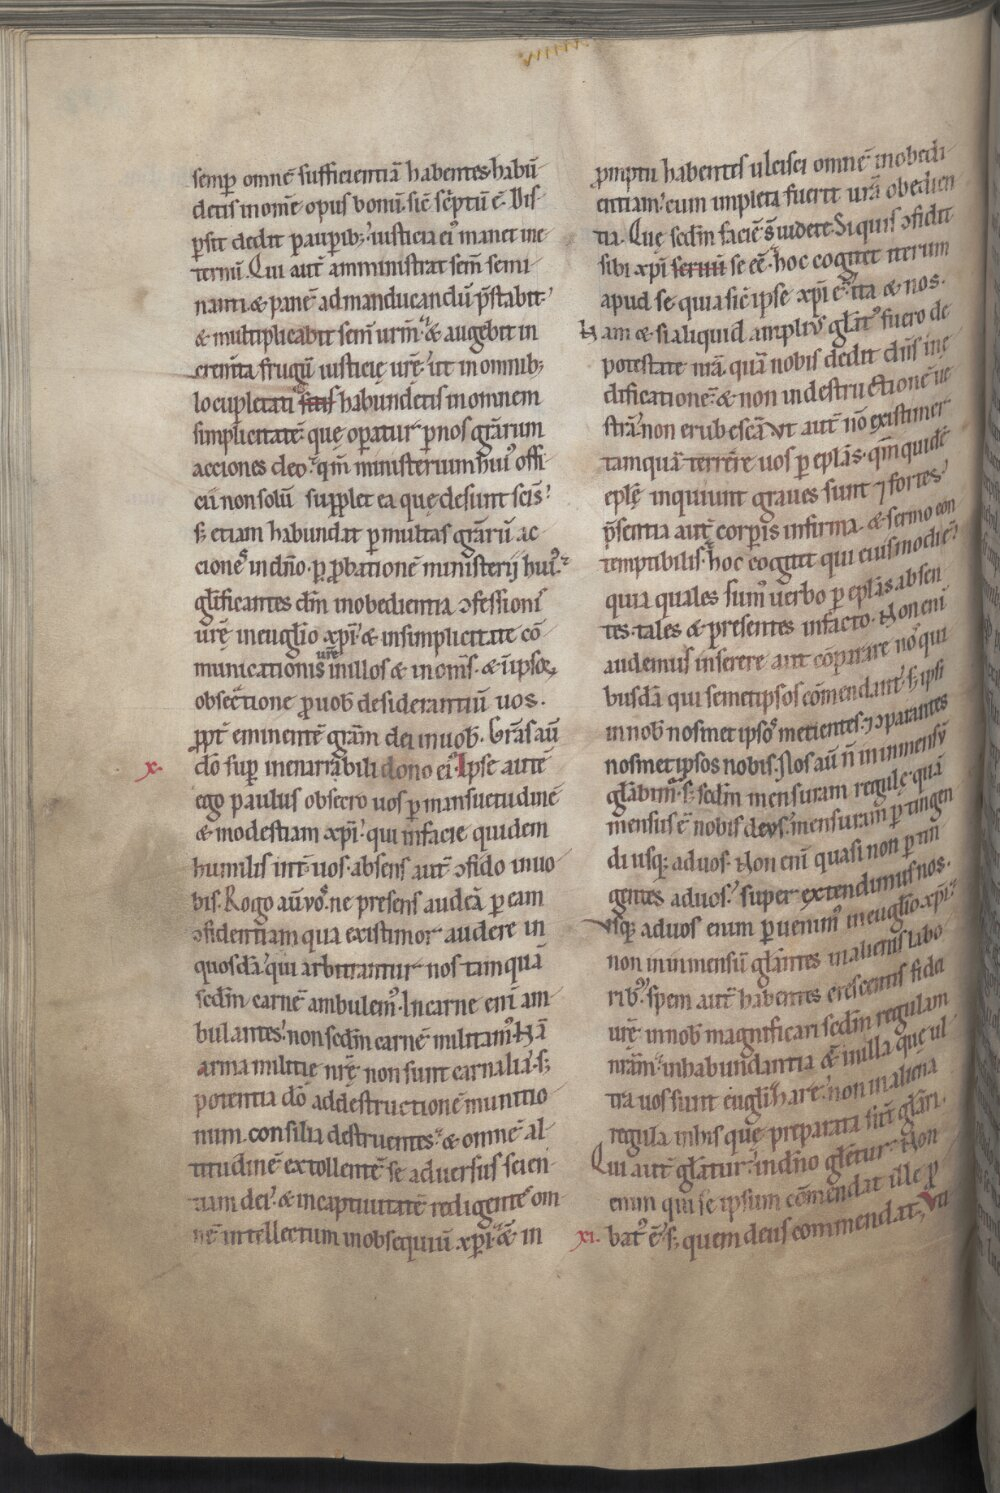 semꝑ omnē sufficientiā habentes habū
detis in om̄e opus bonū. sic̄ sc̄ptū ē. Dis
ꝑsit dedit pauꝑib; iusticia ei᷒ manet ine
ternū. Qui aut̄ amministrat sem̄ semi
nanti & panē ad manducandū p̄stabit.
& multiplicabit sem̄ ur̄m. & augebit in
crem̄ta frugū iusticię ur̄ę. ut in omnib;
locupletati sitis habundetis in omnem
simplicitatē. quę oꝑatur ꝑ nos gr̄arum
acciones deo. qm̄ ministerium hui᷒ offi
cii non solū supplet ea quę desunt sc̄is.
s; etiam habundat ꝑ multas gr̄arū ac
cione᷒ in dn̄o. ꝑ ꝓbationē ministerij hui᷒.
gl̄ificantes dm̄ in obedientia ɔfessioni᷒
ur̄ę in euglio xp̄i. & in simplicitate cō
municationis ur̄ę in illos & in om̄s. & in ipsoꝝ
obsec̄tione ꝓ uob̄ desiderantiū uos.
ꝓpt̄ eminentē gr̄am dei in uob̄. Gr̄as aū
x. dō suꝑ inenarrabili dono ei᷒. Ipse autē
ego paulus obsecro uos ꝑ mansuetudinē
& modestiam xp̄i. qui in facie quidem
humilis int̄ uos. absens aut̄ ɔfido in uo
bis. Rogo aū uo᷒. ne presens audeā ꝑ eam
ɔfidentiam qua existimor audere in
quosdā. qui arbitrantur nos tamquā
sedm̄ carnē ambulem᷒. In carne enī am
bulantes. non sedm̄ carnē militam᷒. Nā
arma militię nr̄ę non sunt carnalia. s;
potentia dō ad destructionē munitio
num. consilia destruentes. & omnē al
titudinē extollentē se aduersus scien
tiam dei. & in captiuitatē redigente᷒ om
nē intellectum in obsequiū xp̄i. & in
ꝓmptu habentes ulcisci omnē inobedi
entiam. cum impleta fuerit ur̄a obedien
tia. Quę sedm̄ faciē s̄ uidete. Si quis ɔfidit
sibi xp̄i seruū se eē. hoc cogitet iterum
apud se quia sic̄ ipse xp̄i ē. ita & nos.
Nam & si aliquid ampli᷒ gl̄at᷒ fuero de
potestate nr̄a. quā nobis dedit dn̄s in ę
dificationē. & non in destructionē ue
strā. non erubescā. Vt aut̄ nō existimer
tamquā terrere uos ꝑ epl̄as. qm̄ quidē
epl̄ę inquiunt graues sunt ⁊ fortes.
p̄sentia aut̄ corꝑis infirma. & sermo con
temptibilis. hoc cogitet qui eiusmodi ē.
quia quales sum᷒ uerbo ꝑ epl̄as absen
tes. tales & presentes in facto. Non enī
audemus inserere aut cōparare no᷒ qui
busdā qui semetipsos cōmendant. s; ipsi
in nob̄ nosmet ipso᷒ metientes. ⁊ ɔparantes
nosmet ipsos nobis. Nos aū n̄ in inmensū
gl̄abim᷒. s; sedm̄ mensuram regulę. quā
mensus ē nobis deus. mensuram ꝑtingen
di usq; ad uos. Non enī quasi non ꝑtin
gentes ad uos. super extendimus nos.
Vsq; ad uos enim ꝑuenim᷒ in euglio xp̄i.
non in inmensū gl̄antes in alienis labo
rib᷒. spem aut̄ habentes crescentis fidei
ur̄ę in uob̄ magnificari sedm̄ regulam
nr̄am. in habundantia & in illa quę ul
tra uos sunt eugliȥare. non in aliena
regula in his quę preparata sūt gl̄ari.
Qui aut̄ gl̄atur. in dn̄o gl̄etur. Non
enim qui se ipsum cōmendat ille ꝓ
xi. bat᷒ ē. s; quem deus commendat. Vti